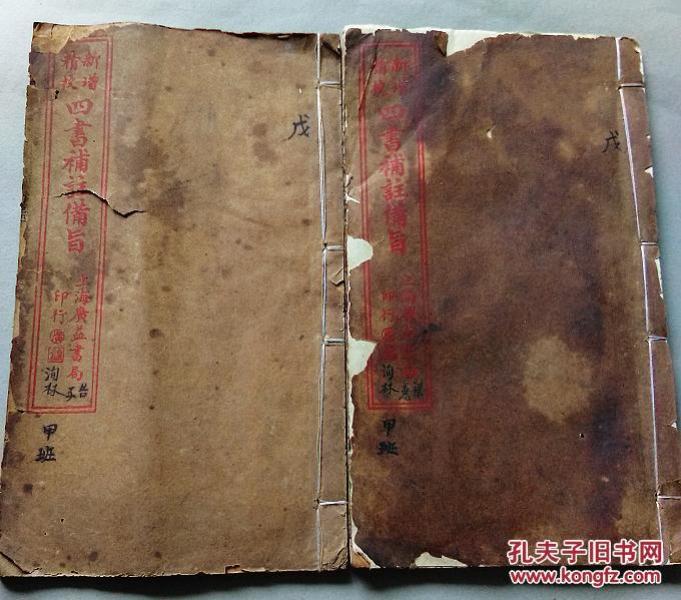 新增
精校
四書補註備旨
上海廣益書局
印行
洵林
戊
甲班
新增
精校
四書補註備旨
印行
洵林
戊
甲班
孔夫子旧书网
www.kongfz.com